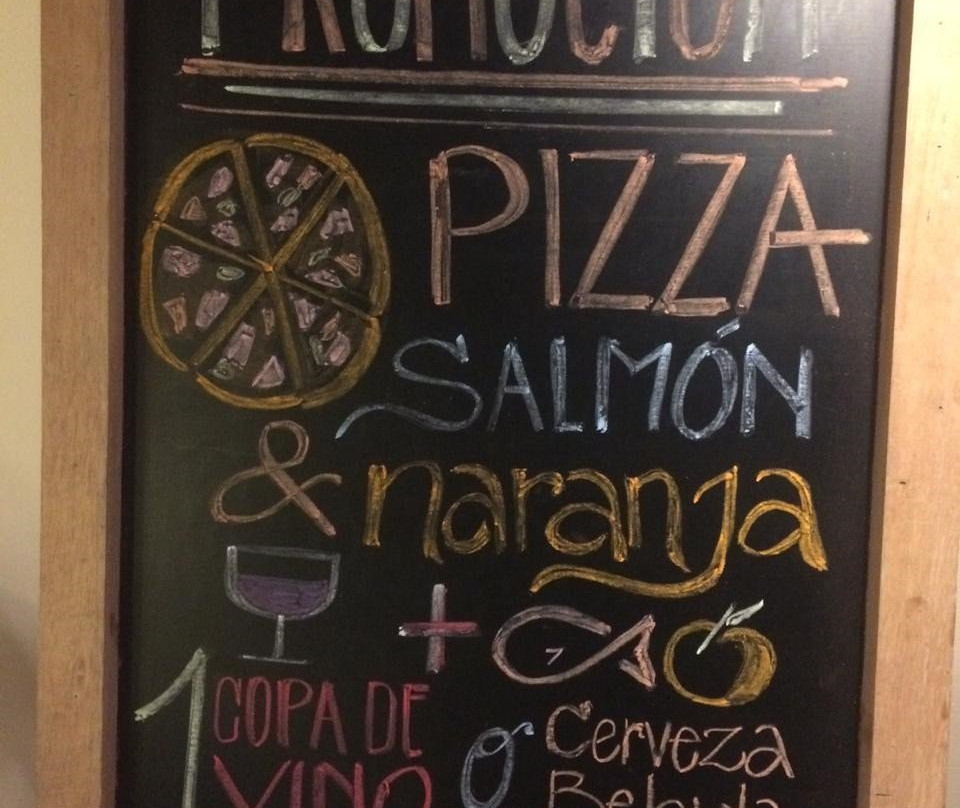 PROMOCIÓN
PIZZA
SALMÓN
& naranja
+
1 COPA DE VINO
ó
Cerveza
Bebida